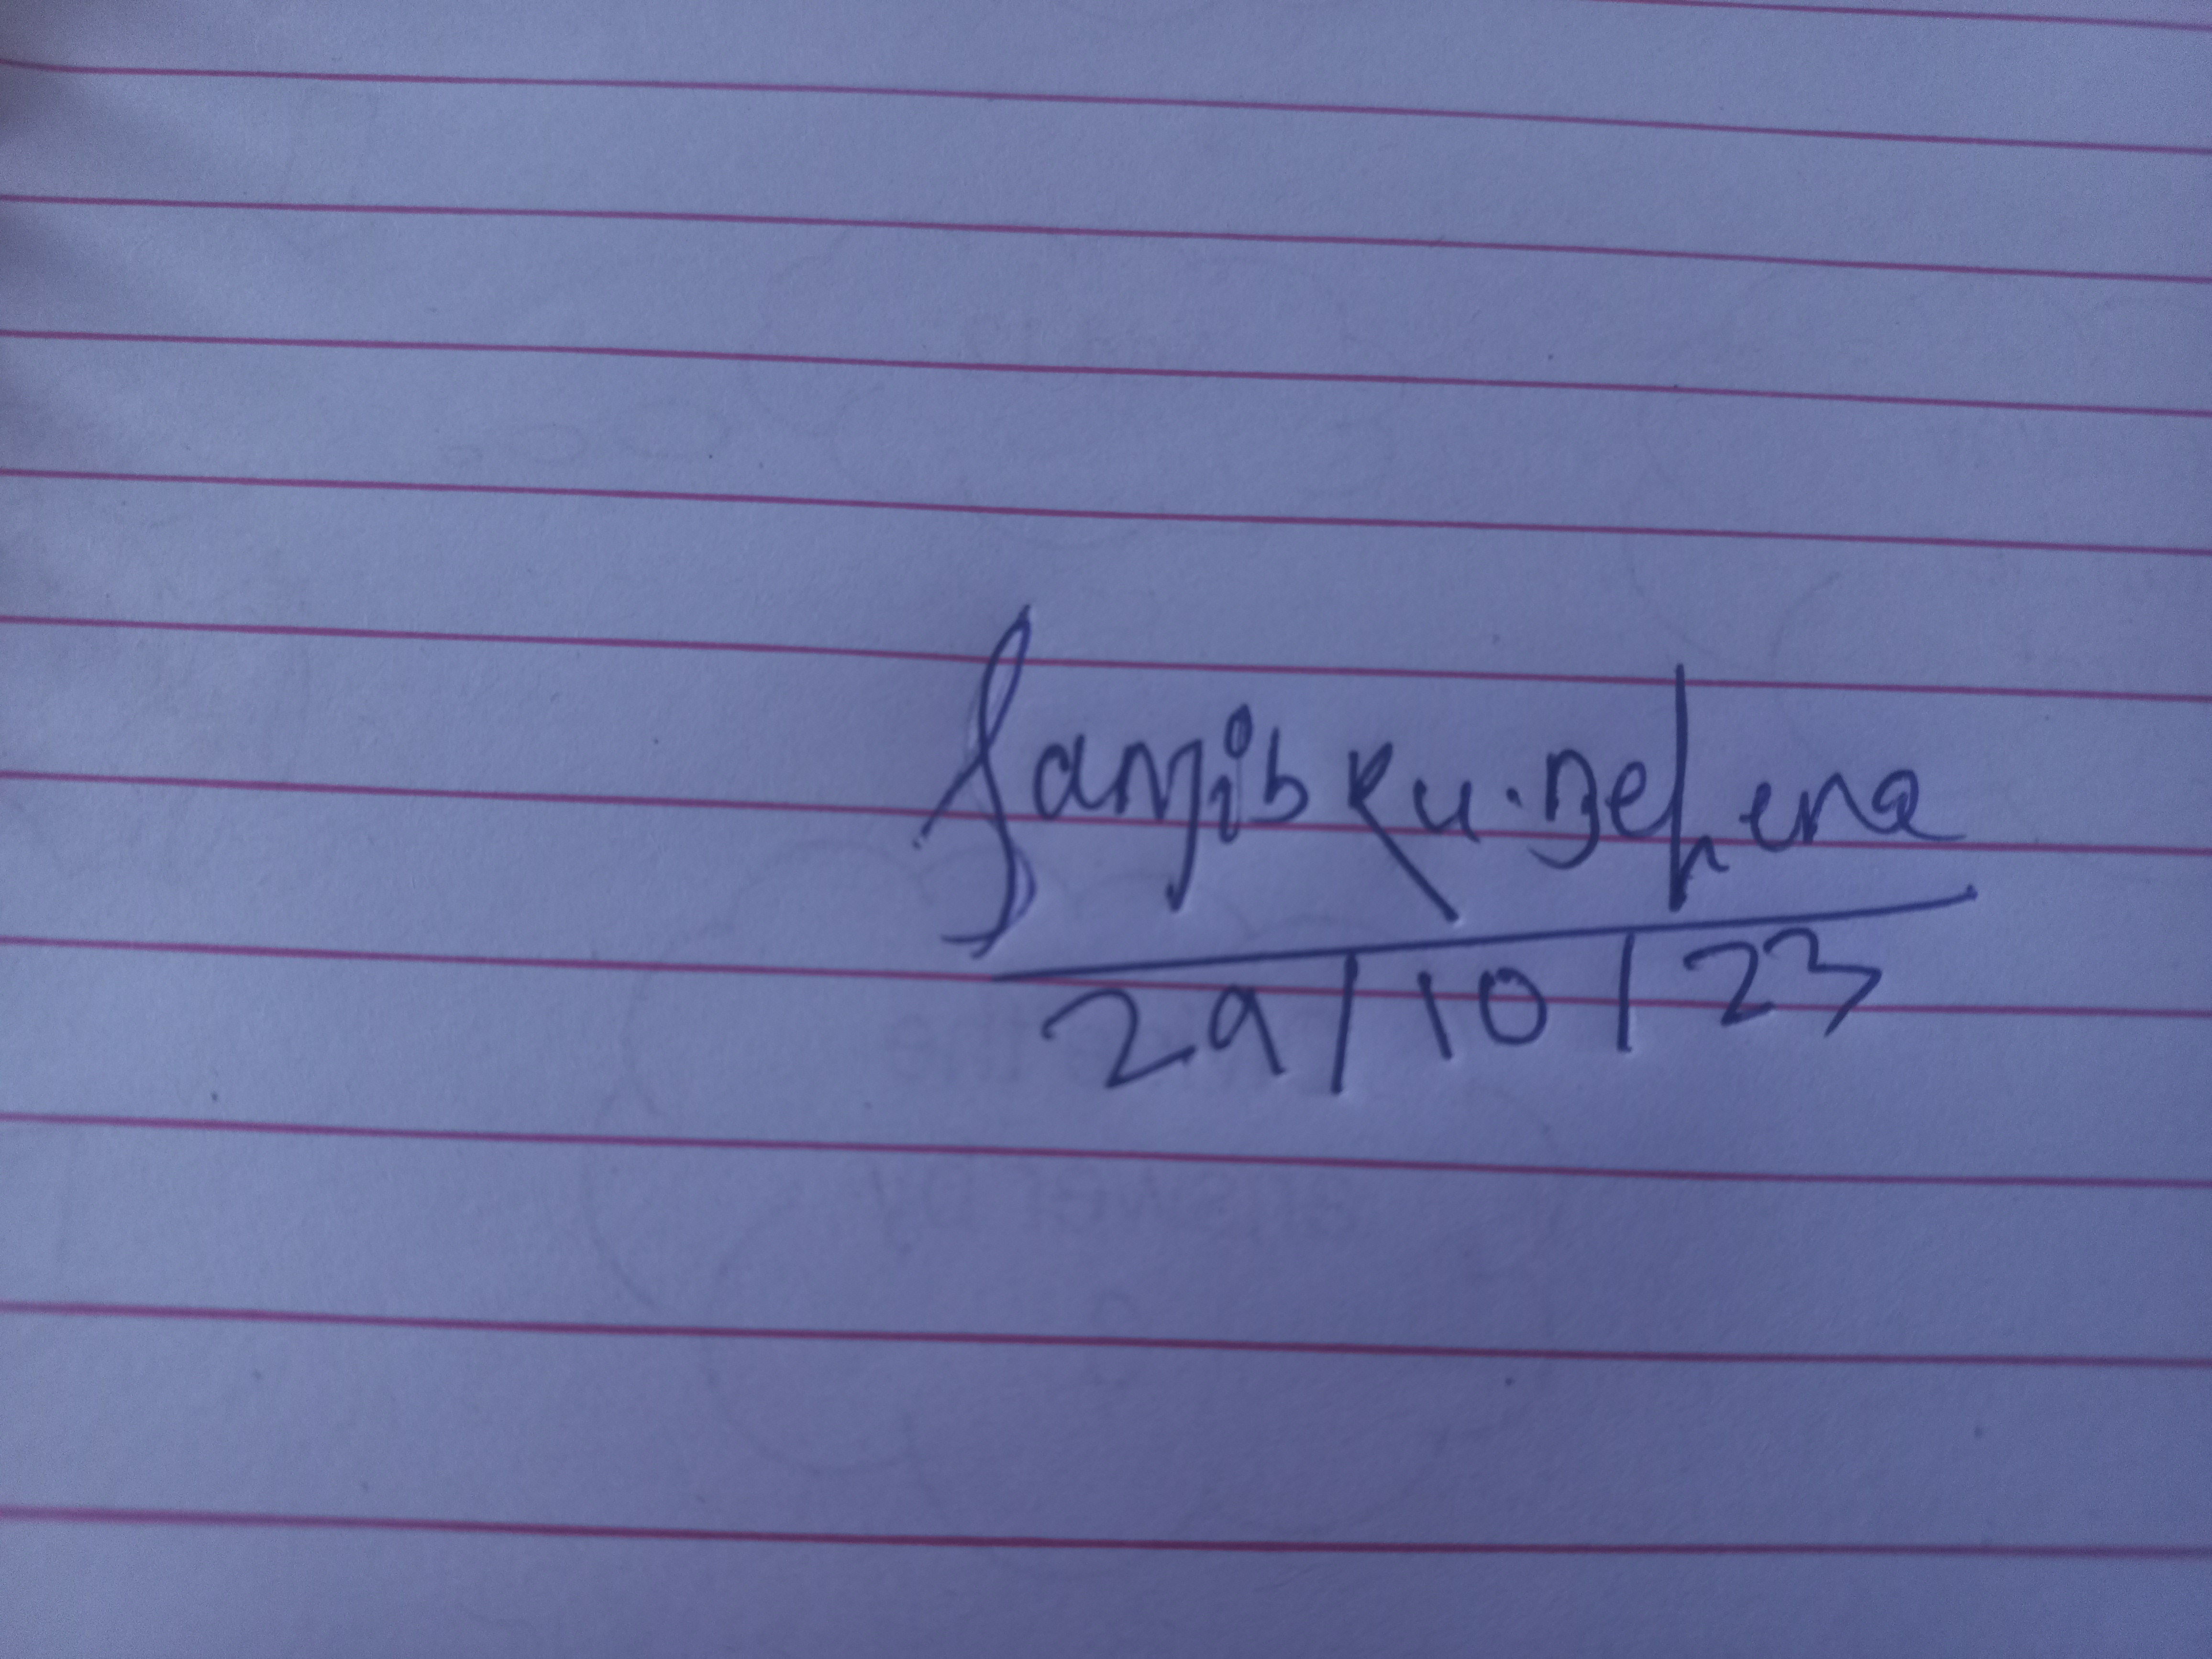 Sanjib Ku. Behera
29/10/23